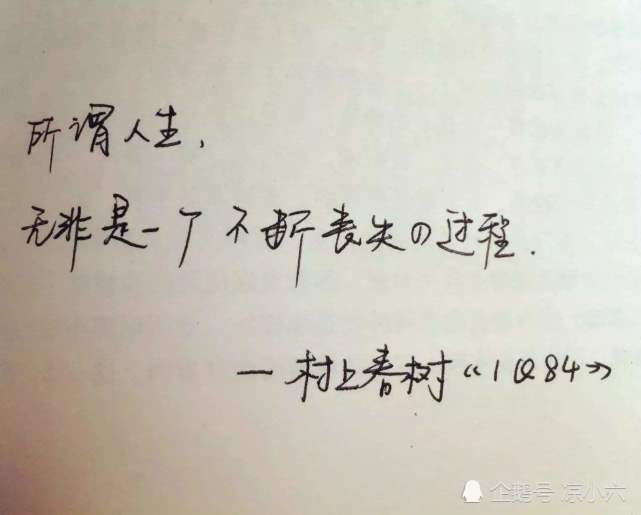 所谓人生,
无非是一个不断丧失の过程.
—村上春树《1Q84》
企鹅号 凉小六